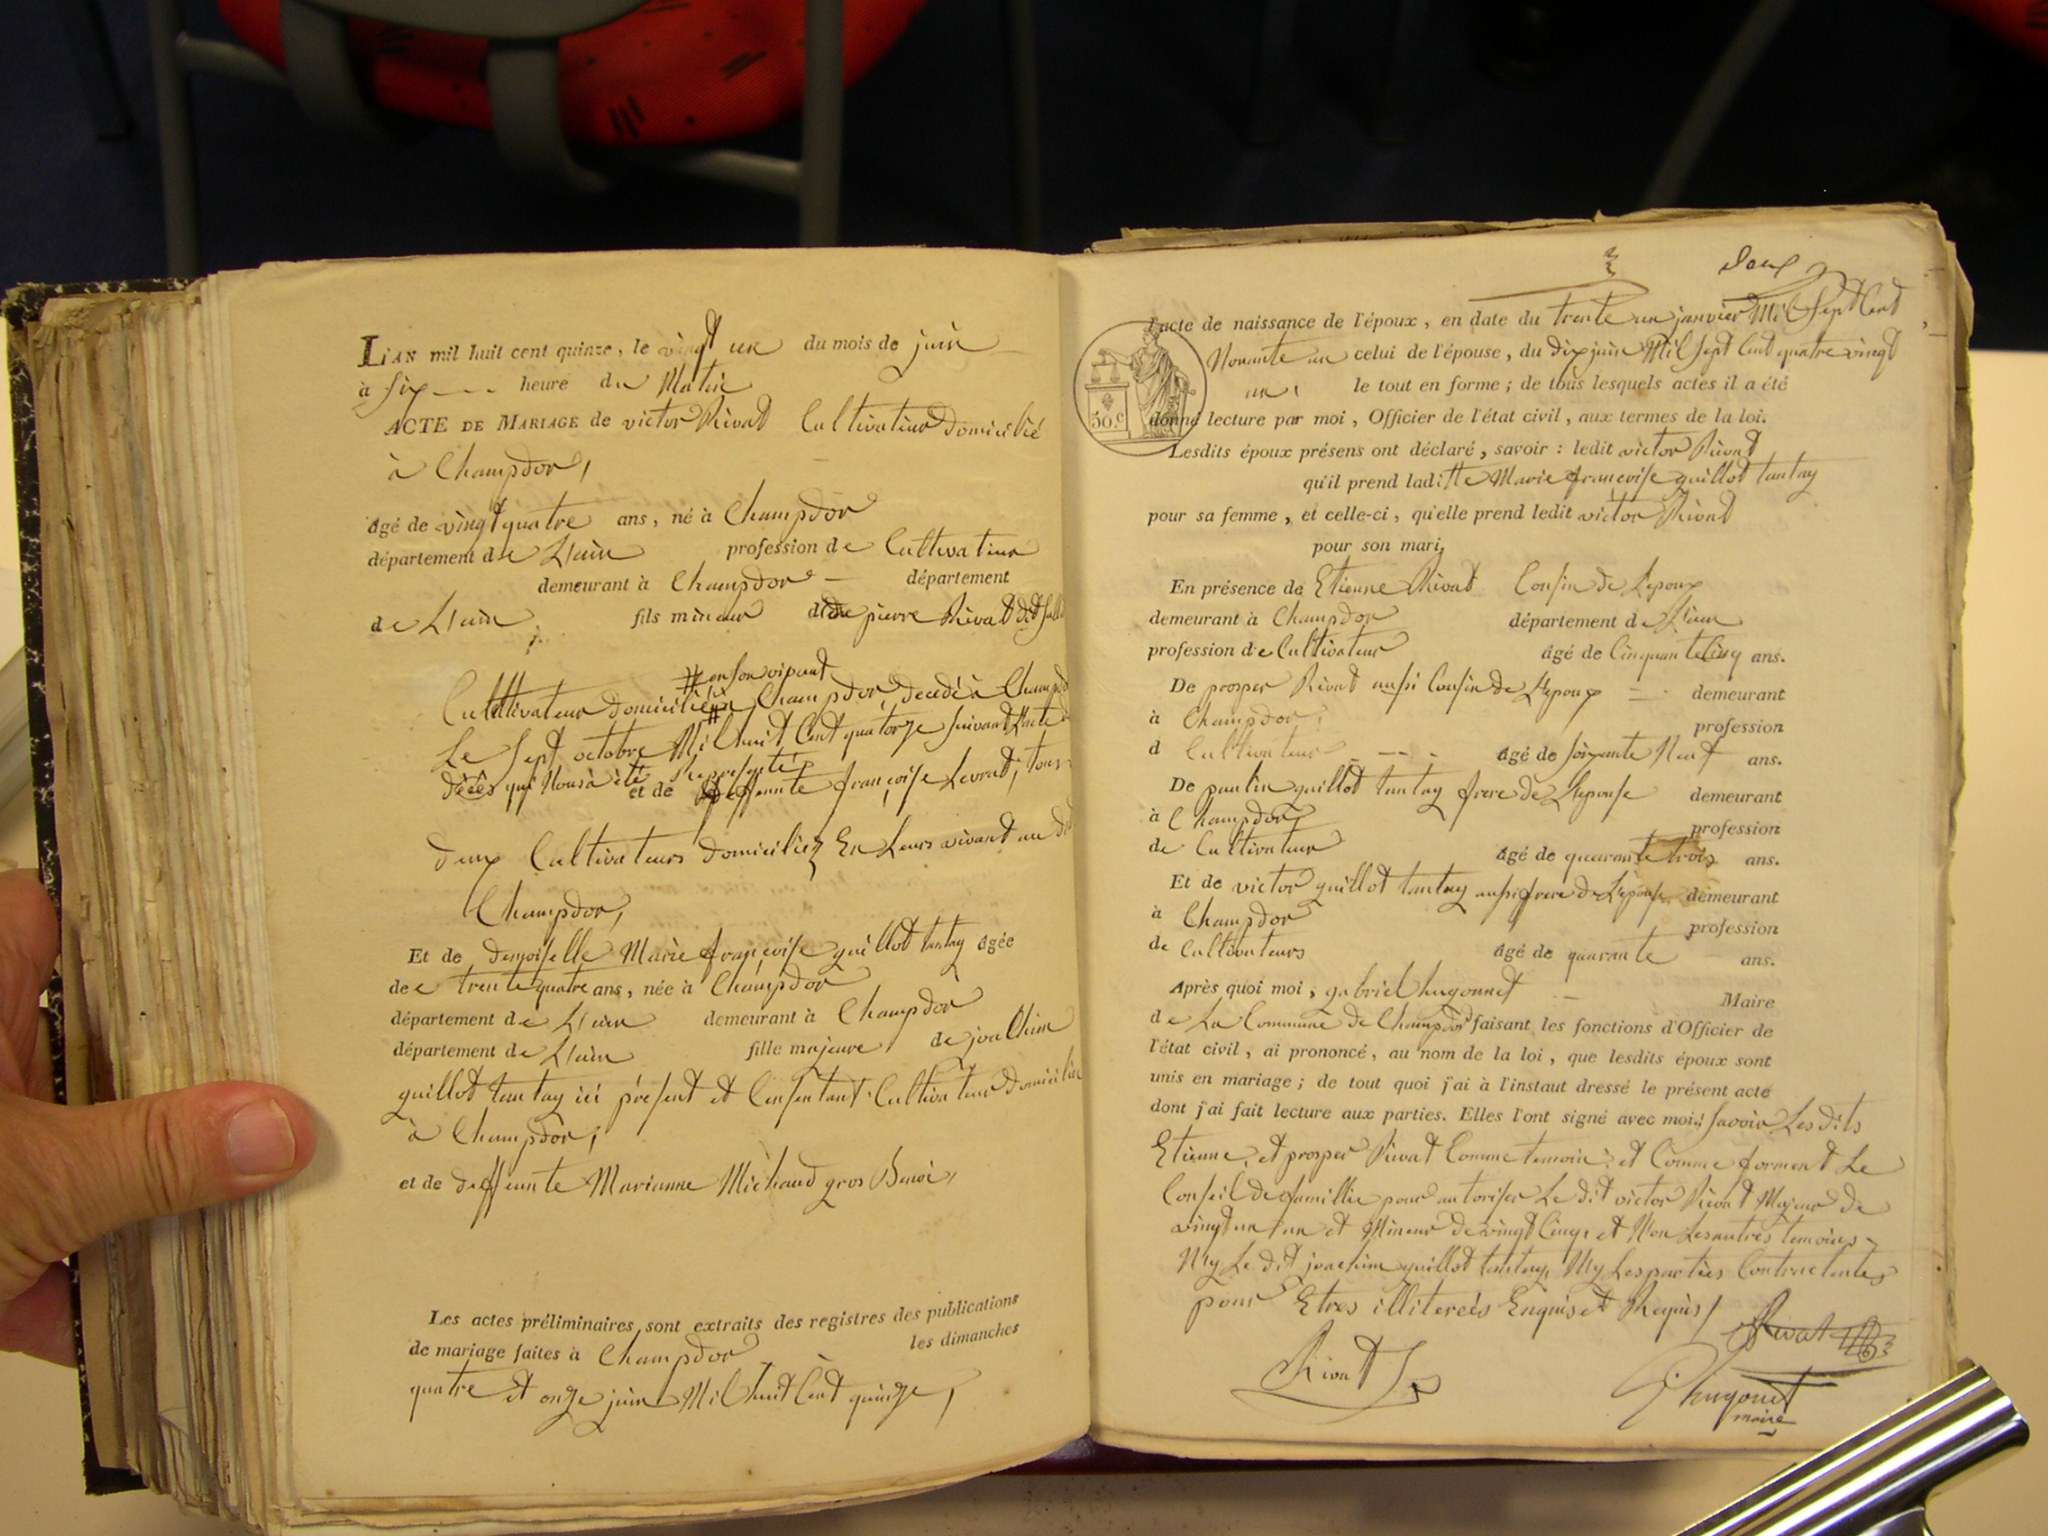 L'AN mil huit cent quinze, le vingt un du mois de juin
à six heure du Matin
ACTE DE MARIAGE de victor Rivat Cultivateur domicilié
à Champdor,
âgé de vingt quatre ans, né à Champdor
département de L'ain profession de Cultivateur
demeurant à Champdor département
de L'ain fils mineur de pierre Rivat
# en son vivant
Cultivateur domicilié # à Champdor, décédé à Champd
Le Sept octobre Mil huit Cent quatorze suivant L'acte de
décès qui Nous à été Representé
et de deffunte françoise Levrat, tous
deux Cultivateurs domiciliez En Leurs vivant au dit
Champdor,
Et de demoiselle Marie françoise guillot tantay âgée
de trente quatre ans, née à Champdor
département de L'ain demeurant à Champdor
département de L'ain fille majeure de joachim
guillot tantay ici présent et Consentant Cultivateur domicilié
à Champdor,
et de deffunte Marianne Michaud gros Benoi,
Les actes préliminaires sont extraits des registres des publications
de mariage faites à Champdor les dimanches
quatre et onze juin Mil huit Cent quinze,
deux
l'acte de naissance de l'époux, en date du trente un janvier Mil Sept Cent
Nonante un celui de l'épouse, du dix juin Mil Sept Cent quatre vingt
un, le tout en forme ; de tous lesquels actes il a été
50 c.
donné lecture par moi, Officier de l'état civil, aux termes de la loi.
Lesdits époux présens ont déclaré, savoir : ledit victor Rivat
qu'il prend laditte Marie françoise guillot tantay
pour sa femme, et celle-ci, qu'elle prend ledit victor Rivat
pour son mari,
En présence de Etienne Rivat Cousin de L'epoux
demeurant à Champdor département de L'ain
profession de Cultivateur âgé de Cinquante Cinq ans.
De prosper Rivat aussi Cousin de L'epoux demeurant
à Champdor, profession
d Cultivateur âgé de soixante Neuf ans.
De paulin guillot tantay frere de L'epouse demeurant
à Champdor, profession
de Cultivateur âgé de quarante trois ans.
Et de victor guillot tantay aussi frere de L'epouse demeurant
à Champdor profession
de Cultivateurs âgé de quarante ans.
Après quoi moi, gabriel hugonnet Maire
de La Commune de Champdor faisant les fonctions d'Officier de
l'état civil, ai prononcé, au nom de la loi, que lesdits époux sont
unis en mariage ; de tout quoi j'ai à l'instant dressé le présent acte
dont j'ai fait lecture aux parties. Elles l'ont signé avec moi, Savoir Lesdits
Etienne, et prosper Rivat Comme temoins et Comme formant Le
Conseil de famillie pour autoriser Le dit victor Rivat Majeur de
vingt un an et Mineur de vingt Cinq, et Non Les autres temoins
Ny Le dit joachim guillot tantay, Ny Les parties Contractantes
pour Etres illiterées Enquis et Requis /
Rivat
Rivat
hugonnet
maire